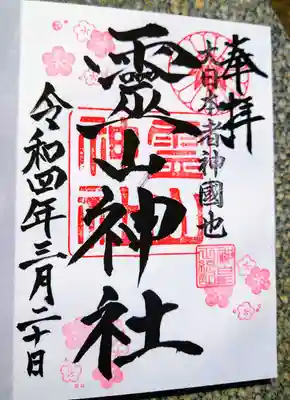 奉拝
大日本者神國也
靈山神社
霊山神社
令和四年三月二十日